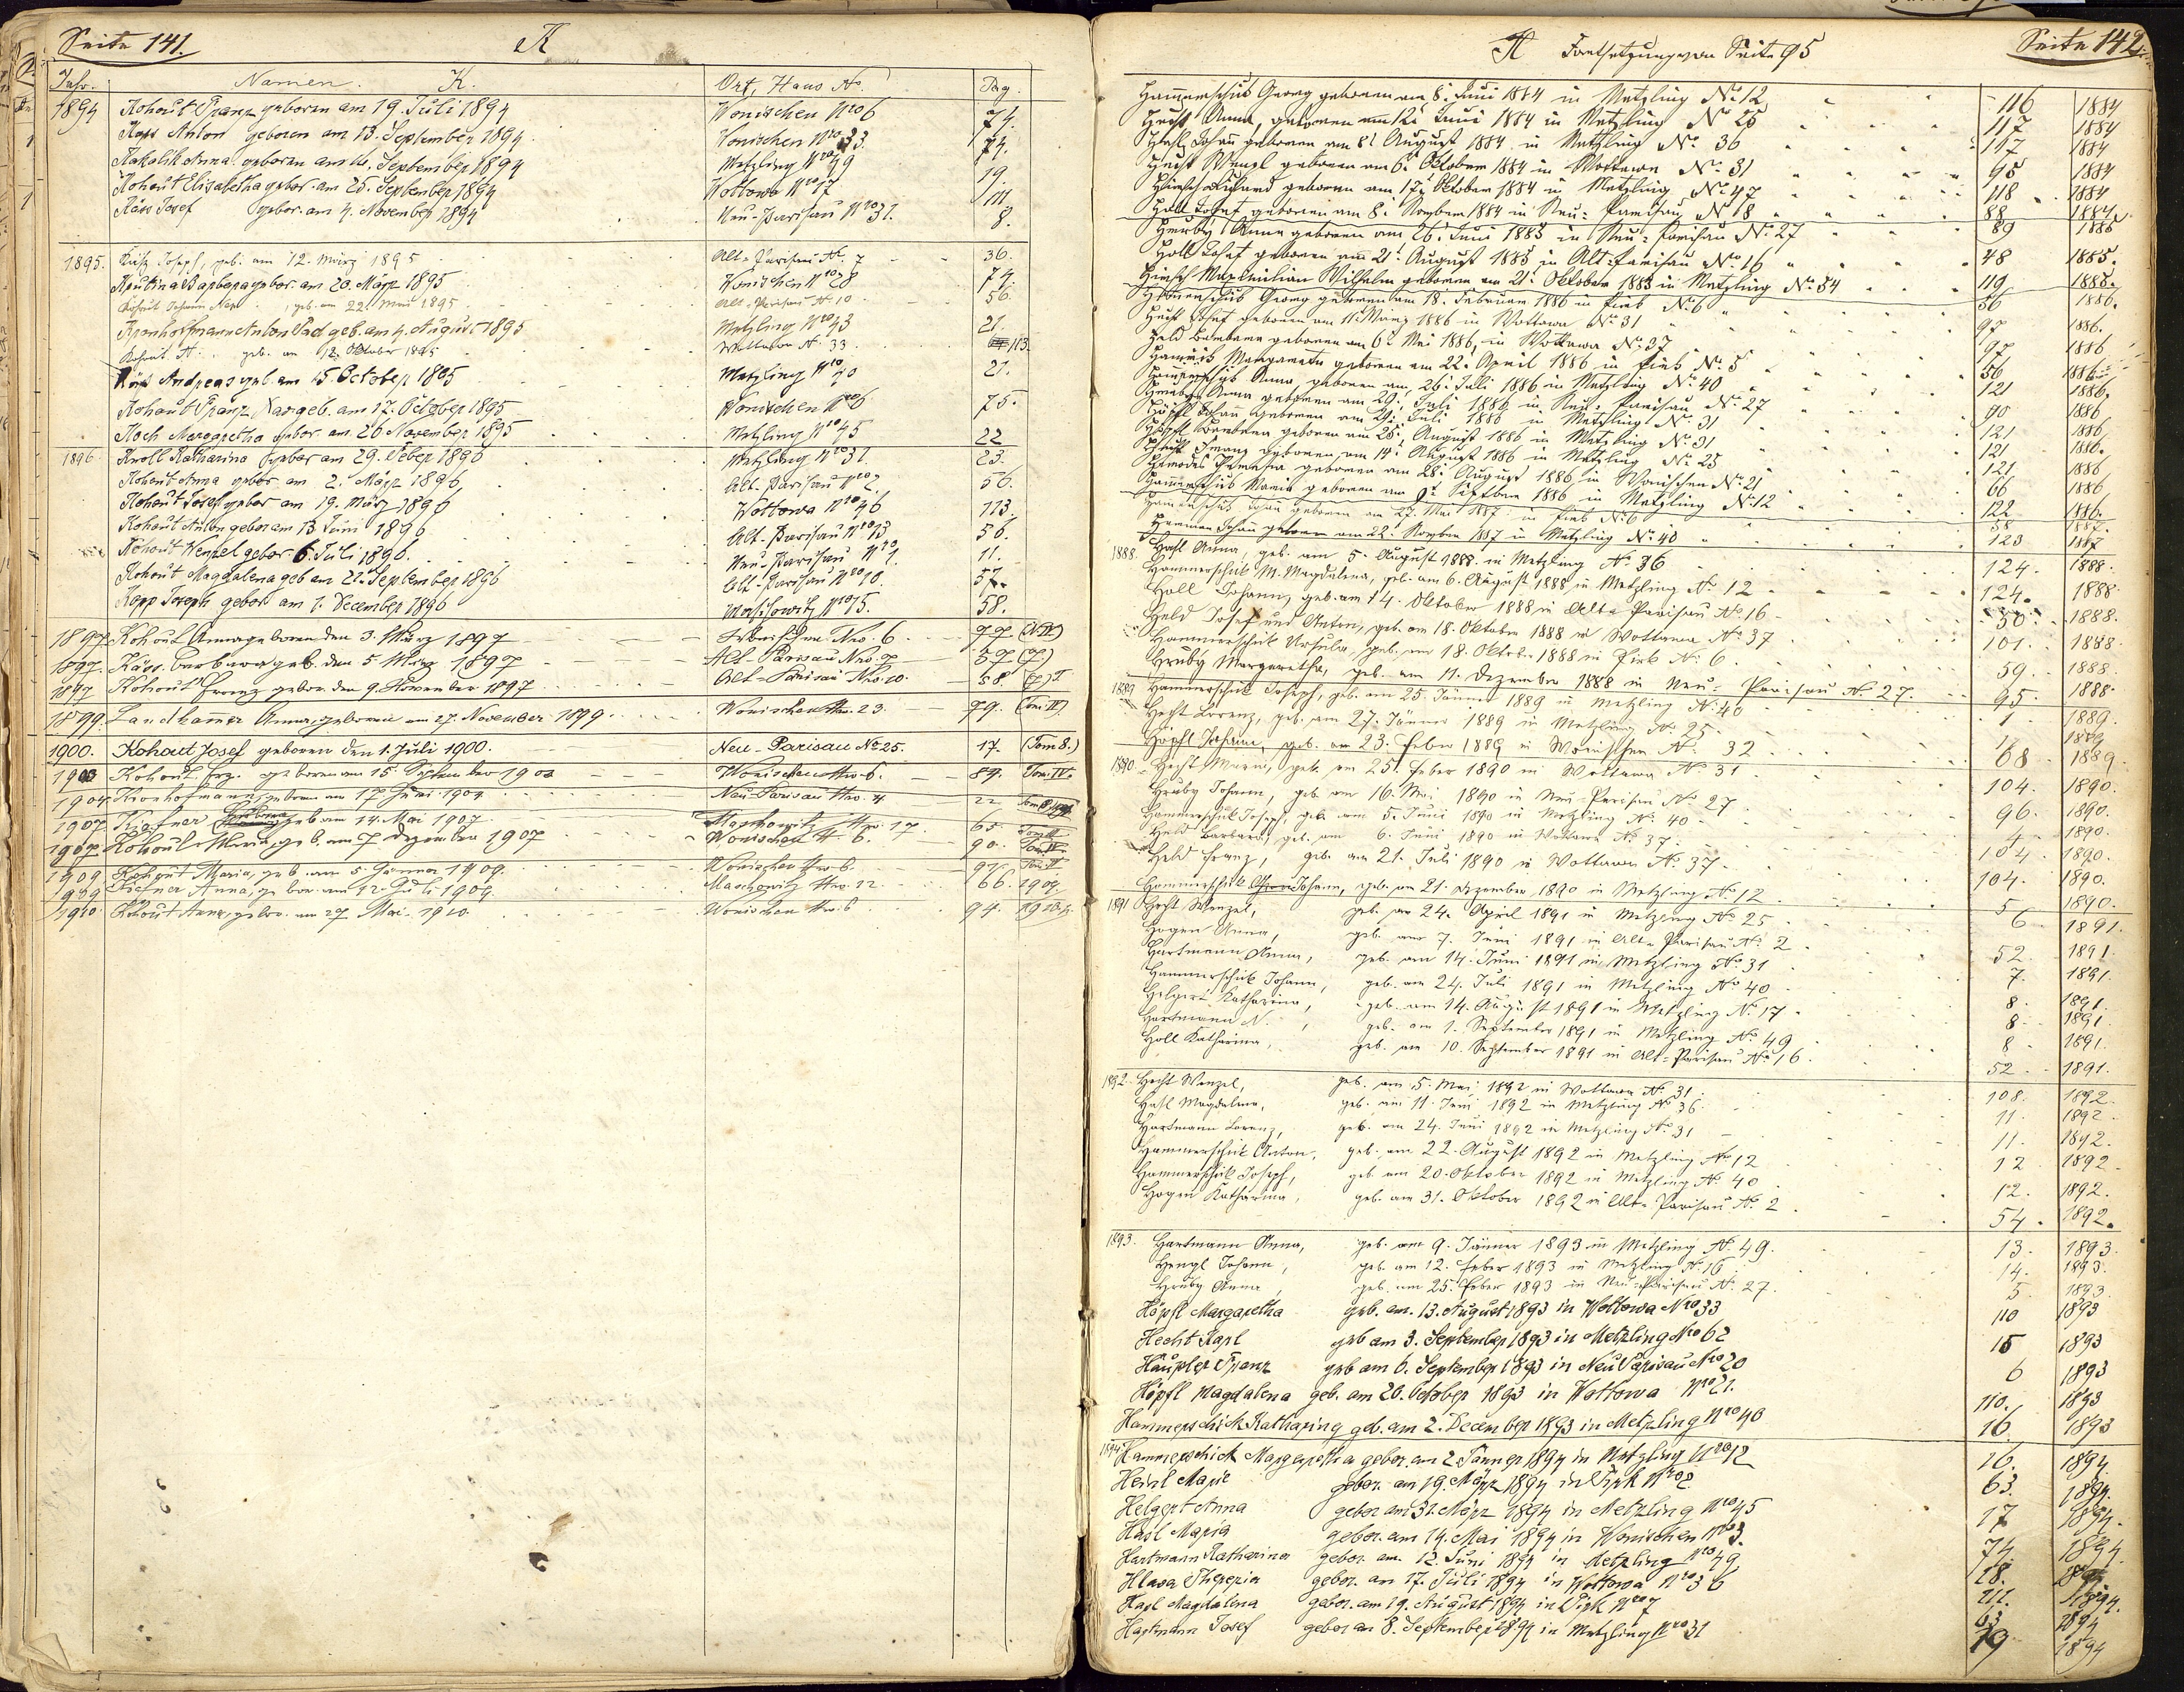 Seite 141.
K
Jahr. Namen. K. Ort, Haus No. Pag.
1894 Kohout Franz geboren am 19. Juli 1894 Wonischen Nro 6 74.
Kass Anton geboren am 13. September 1894 Wonischen Nro 33. 74.
Anna geboren am September 1894 Metzling Nro 49 19.
Kohout Elisabetha gebor. am 25. September 1894 Wottowa Nro 17 111.
Käss Josef gebor. am 4. November 1894 Neu-Parisau Nro 31. 8.
1895. Joseph, geb. am 12. März 1895 Alt-Parisau No. 7 36.
Barbara gebor. am 20. März 1895 Wonischen Nro 28 74.
Kohout Johann geb. am 22. 1895 Alt-Parisau No 10 56.
Kronhofmann Anton geb. am 4. August 1895 Metzling Nro 43 21.
Kohout N. geb. am 12. Oktober 1895 Wottawa No. 33. 113.
Käss Andreas geb. am 15. October 1895 Metzling Nro 70 21.
Kohout Franz geb. am 17. October 1895 Wonischen Nro 6 75.
Koch Margaretha gebor. am 20 November 1895 Metzling Nro 45 22
1896 Knoll Katharina gebor am 29. Feber 1896 Metzling Nro 31. 23.
Kohout Anna gebor. am 2. März 1896 Alt-Parisau Nro 2. 56.
Kohout Josef gebor am 19. März 1896 Wottowa Nro 46 113.
Kohout Anton gebor am 13 Juni 1896 Alt-Parisau Nro 13 56.
Kohout Wenzel gebor. 6 Juli 1896. Neu-Parisau Nro 1. 11.
Kohout Magdalena geb am 21. September 1896 Alt-Parisau Nro 10. 57.
Kopp Joseph gebor am 1. December 1896 Maschowitz Nro 15. 58.
1897 Kohout Anna geboren den 3. März 1897 Wonischen Nro. 6 77
1897. Käss Barbara geb. den 5. März 1897 Alt-Parisau Nro. 7 57
1897 Kohout Franz gebor. den 9. November 1897 Alt-Parisau Nro. 10. 58.
1899. Landkamer Anna, geboren am 27. November 1899. Wonischen Nro. 23. 79. (Tom: IV)
1900. Kohout Josef geboren den 1. Juli 1900. Neu-Parisau No 25. 17. (Tom 8.)
1903 Kohout Frz. geboren am 15. September 1903 Wonischen Nro. 6. 89. Tom. IV.
1904. Kronhofmann geboren am 17 Juni 1904. Neu-Parisau Nro. 4 22
1907 Kiefner geb. am 14. Mai 1907. Maschowitz Nro. 17 65.
1907 Kohout Maria, geb. am 7 Dezember 1907 Wonischen No 6. 90.
1909 Kohout Maria, geb. am 5 Jänner 1909. Wonischen Nro 6.
1909 Kiefner Anna, gebor. am 12. Juli 1909. Maschowitz Nro. 12 66. 1909
1910. Kohout Anna, gebor. am 27 Mai 1910. Wonischen Nro. 6 94. 1910
H Fortsetzung von Seite 95
Seite 142
Hammerschick Georg geboren am 8. Juni 1884 in Metzling No 12 116 1884
Hecht Anna, geboren am 12. Juni 1884 in Metzling No 25 117 1884
Hasl Johann geboren am 8. August 1884 in Metzling No 36 117 1884
Hecht Wenzl geboren am 6. Oktober 1884 in Wottawa No 31 95 1884
Richard geboren am 17. Oktober 1884 in Metzling No 47 118 1884
Holl Josef, geboren am 8. November 1884 in Neu-Parisau No 18 88 1884
Hruby Anna geboren am 26. Juni 1885 in Neu-Parisau No 27 89 1885
Holl Josef geboren am 21. August 1885 in Alt-Parisau No 16 48 1885.
Hirsch Maximilian Wilhelm geboren am 21. Oktober 1885 in Metzling No 34 119 1885.
Hammerschick Georg geboren am 18. Februar 1886 in Pirk No 6 56 1886.
Hecht Josef geboren am 11. März 1886 in Wottawa No 31 97 1886.
Held Barbara geboren am 6. Mai 1886, in Wottawa No 37 97 1886
Margaretha geboren am 22. April 1886 in Pirk No. 5 56 1886
Hammerschick Anna, geboren am 26. Juli 1886 in Metzling No 40 121 1886.
Hruby Anna geboren am 29. Juli 1886 in Neu-Parisau No 27 90 1886
Höpfl Johann geboren am 29. Juli 1886 in Metzling No 31 121 1886
Höpfl Barbara geboren am 25. August 1886 in Metzling No 31 121 1886.
Hecht Franz geboren am 14. August 1886 in Metzling No 25 121 1886
Theresia geboren am 28. August 1886 in Wonischen No 21 66 1886
Hammerschick Maria geboren am 9. September 1886 in Metzling No 12 122 1886.
Hammerschick Johann geboren am 1887 in Pirk No 6 58 1887.
Johann geboren am 22. November 1887 in Metzling No 40 123 1887
1888. Hasl Anna, geb. am 5. August 1888. in Metzling No 36 124. 1888.
Hammerschick M. Magdalena, geb. am 6. August 1888 in Metzling No. 12 124. 1888
Holl Johann, geb. am 14. Oktober 1888 in Alt-Parisau No 16 50 1888.
Held Josef und Anton, geb. am 18. Oktober 1888 in Wottawa No 37 101. 1888.
Hammerschick Ursula, geb. am 18. Oktober 1888 in Pirk No 6. 59. 1888
Hruby Margaretha, geb. am 11. Dezember 1888 in Neu-Parisau No 27. 95. 1888.
1889 Hammerschick Joseph, geb. am 25. Jänner 1889 in Metzling No 40 1 1889.
Hecht Lorenz, geb. am 27. Jänner 1889 in Metzling No 25 1889
Höpfl Johann, geb. am 23. Feber 1889 in Wonischen No. 32 68 1889.
1890. Hecht Maria, geb. am 25. Feber 1890 in Wottawa No 31 104. 1890.
Hruby Johann, geb. am 16. Mai 1890 in Neu-Parisau No 27 96. 1890.
Hammerschick Joseph, geb. am 5. Juni 1890 in Metzling No. 40 4 1890.
Held Barbara, geb. am 6. Juni 1890 in Wottawa No 37 104. 1890.
Held Franz, geb. am 21. Juli 1890 in Wottawa No. 37 104. 1890.
Hammerschick Johann, geb. am 21. Dezember 1890 in Metzling No 12 5 1890.
1891 Hecht Wenzel, geb. am 24. April 1891 in Metzling No 25 6 1891.
Hogen Anna, geb. am 7. Juni 1891 in Alt-Parisau No. 2 52. 1891
Hartmann Anna, geb. am 14. Juni 1891 in Metzling No 31 7. 1891.
Hammerschick Johann, geb. am 24. Juli 1891 in Metzling No 40 8. 1891.
Helgert Katharina, geb. am 14. August 1891 in Metzling No. 17 8 1891
Hartmann N., geb. am 1. September 1891 in Metzling No 49 8 1891.
Holl Katharina, geb. am 10. September 1891 in Alt-Parisau No 16. 52. 1891.
1892. Hecht Wenzel, geb. am 5. Mai 1892 in Wottawa No. 31. 108. 1892.
Hasl Magdalena, geb. am 11. Juni 1892 in Metzling No 36. 11. 1892.
Hartmann Lorenz, geb. am 24. Juni 1892 in Metzling No. 31 11. 1892.
Hammerschick Anton, geb. am 22. August 1892 in Metzling No 12 12 1892.
Hammerschick Joseph, geb. am 20. Oktober 1892 in Metzling No 40 12. 1892.
Hogen Katharina, geb. am 31. Oktober 1892 in Alt-Parisau No. 2 54. 1892.
1893. Hartmann Anna, geb. am 9. Jänner 1893 in Metzling No. 49. 13. 1893.
Hengl Johann, geb. am 12. Feber 1893 in Metzling No 16 14. 1893.
Hruby Anna, geb. am 25. Feber 1893 in Neu-Parisau No. 27. 5. 1893
Höpfl Margaretha geb. am. 13. August 1893 in Wottowa Nro 33 110 1893
Hecht Karl geb am 3. September 1893 in Metzling Nro 62 15 1893
Häupler Franz geb am 6. September 1893 in Neu Parisau Nro 20 6 1893
Höpfl Magdalena geb. am 20. October 1893 in Wottowa Nro 21. 110. 1893
Hammerschick Katharina geb. am 2. December 1893 in Metzling Nro 40 16. 1893
1894 Hammerschick Margaretha gebor. am 2 Jänner 1894 in Metzling Nro 12 16. 1894
Heinl Marie gebor. am 19. März 1894 in Pirk Nro 2 63. 1894.
Helgert Anna gebor am 31. März 1894 in Metzling Nro 45 17 1894.
Hasl Maria gebor. am 14. Mai 1894 in Wonischen Nro 3. 74 1894
Hartmann Katharina gebor. am. 12. Juni 1894 in Metzling Nro 49. 18. 1894
Hlava Theresia gebor. am 17. Juli 1894 in Wottowa Nro 36 111. 1894.
Hasl Magdalena gebor. am 19. August 1894 in Pirk Nro 7 63 1894
Hartmann Josef gebor am 8. September 1894 in Metzling Nro 31 19 1894